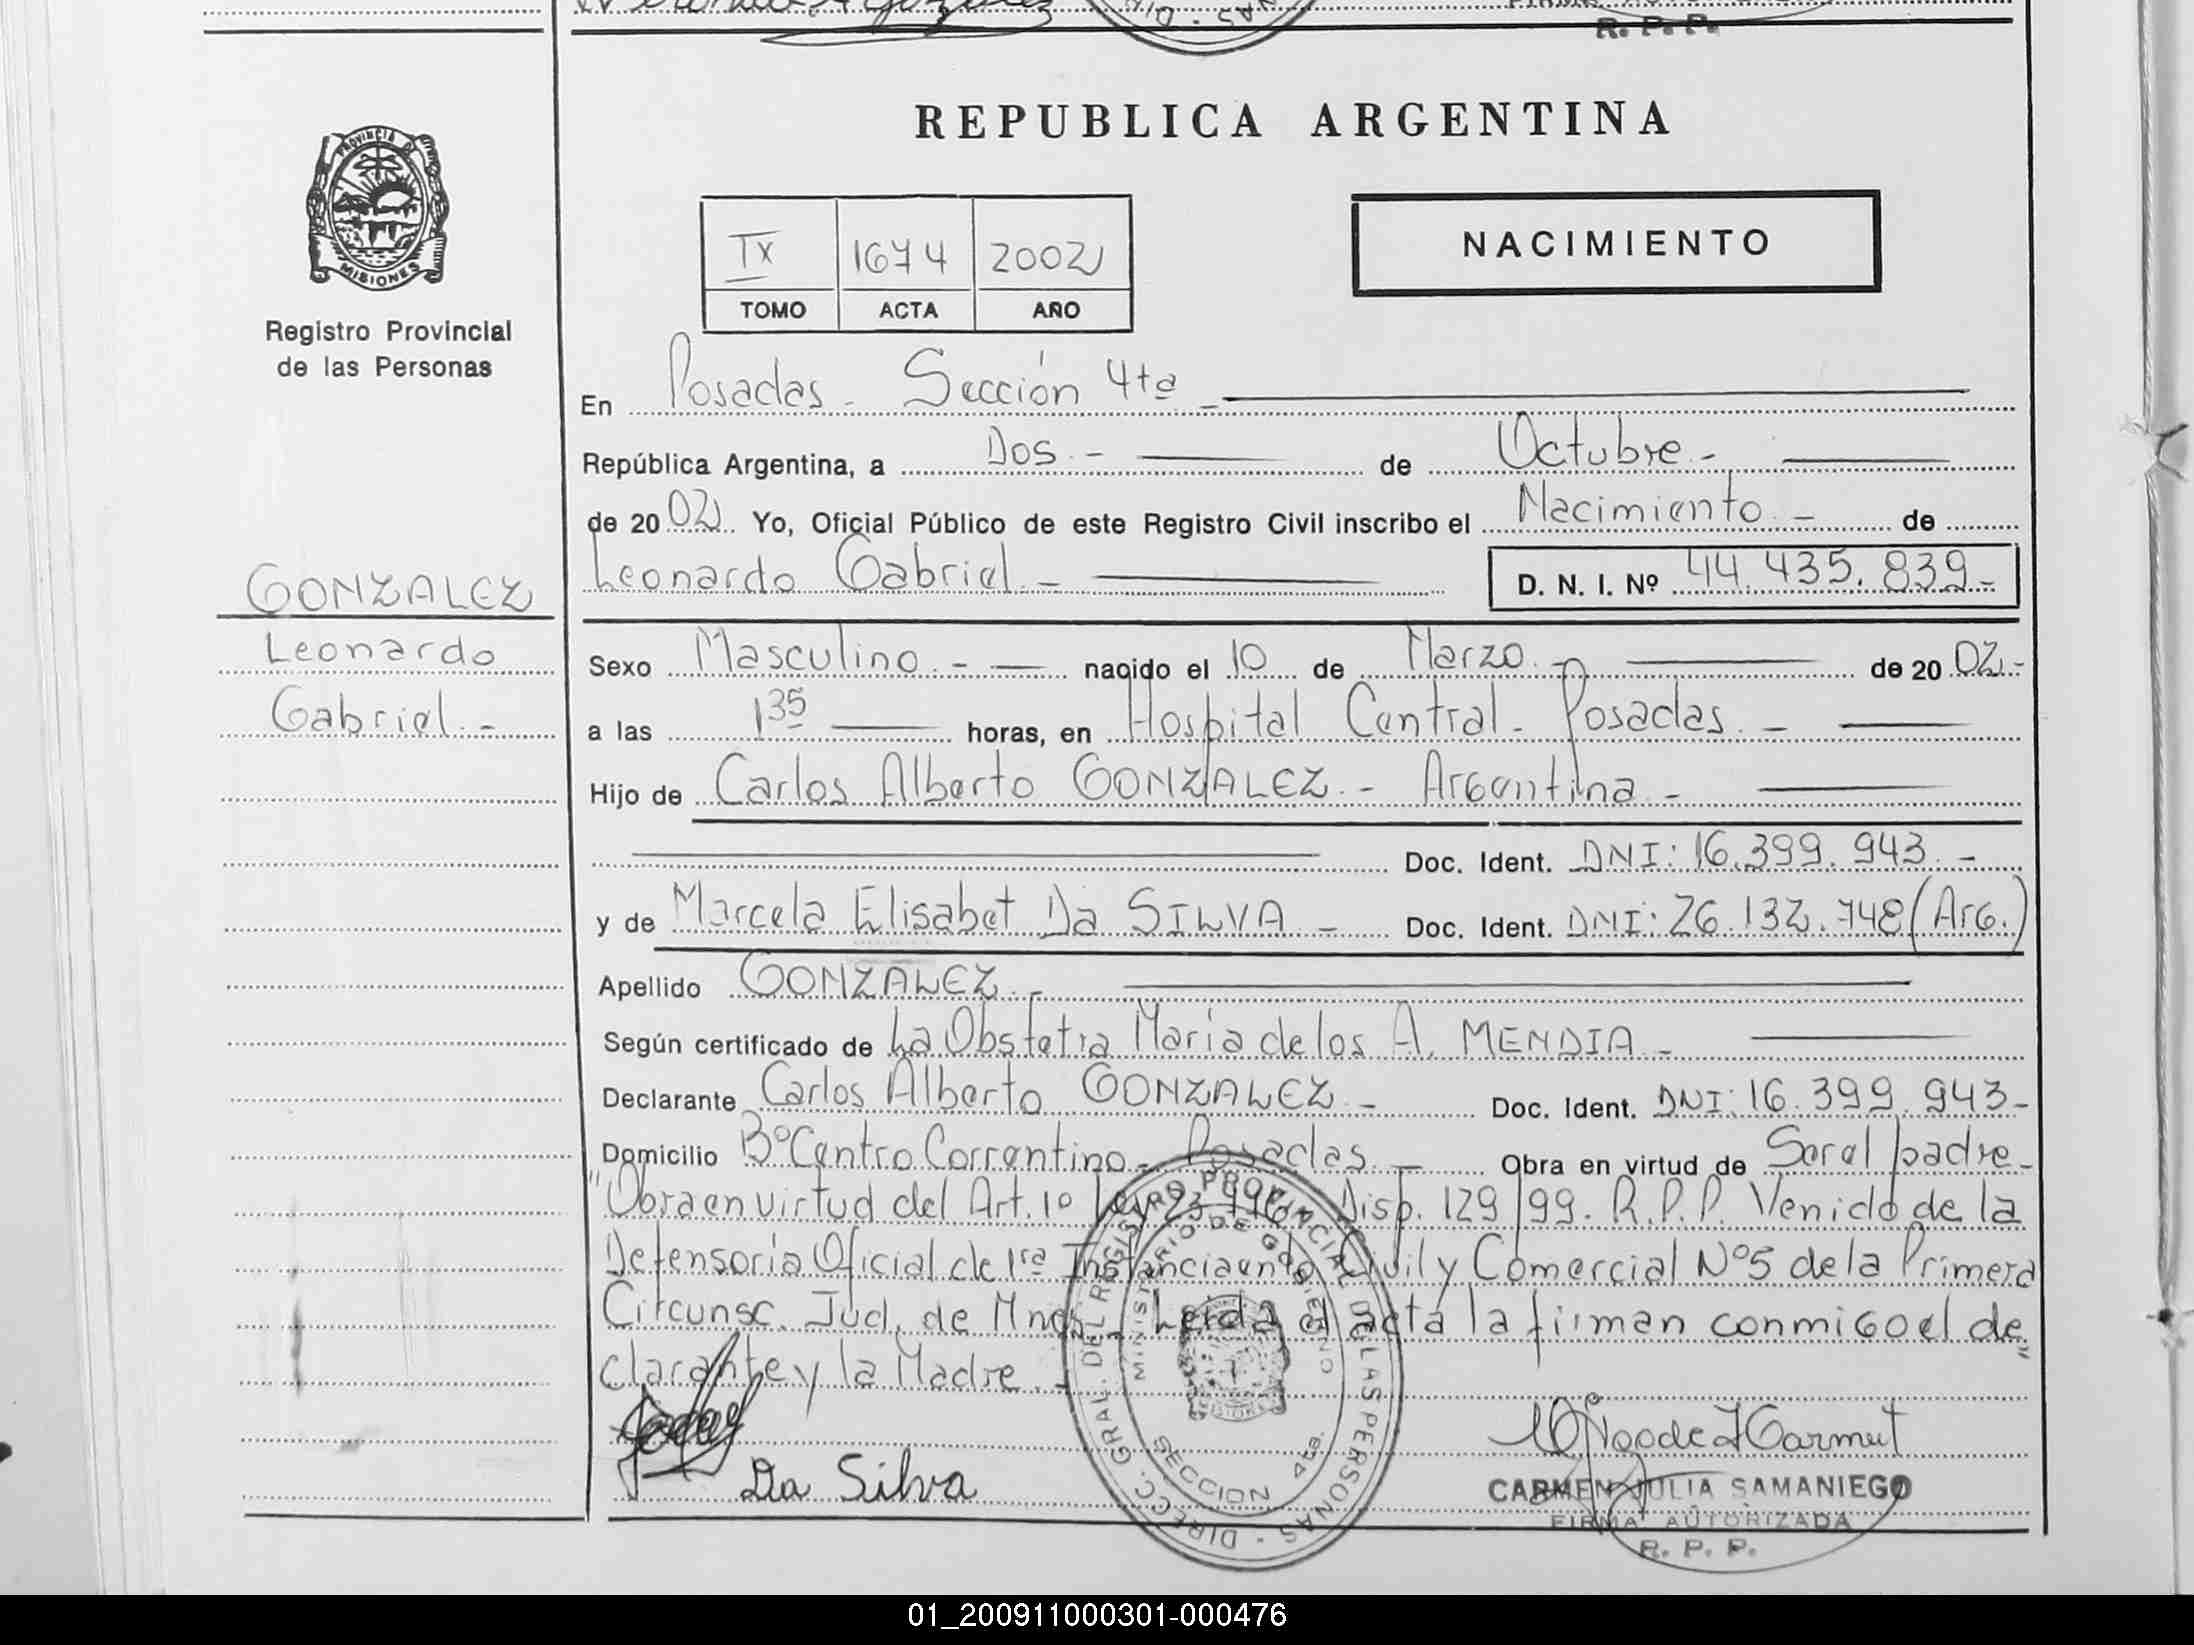 R. P. P.
REPUBLICA ARGENTINA
PROVINCIA DE
MISIONES
Registro Provincial
de las Personas
NACIMIENTO
IX 1674 2002
TOMO ACTA AÑO
En Posadas - Sección 4ta -
República Argentina, a Dos - de Octubre -
de 2002 Yo, Oficial Público de este Registro Civil inscribo el Nacimiento - de
Leonardo Gabriel - D. N. I. Nº 44.435.839-
GONZALEZ
Leonardo
Gabriel -
Sexo Masculino - nacido el 10 de Marzo - de 2002.-
a las 1 35 horas, en Hospital Central - Posadas -
Hijo de Carlos Alberto GONZALEZ - Argentina -
Doc. Ident. DNI: 16.399.943 -
y de Marcela Elisabet Da SILVA - Doc. Ident. DNI: 26.132.748 (Arg.)
Apellido GONZALEZ -
Según certificado de La Obstetra María de los A. MENDIA -
Declarante Carlos Alberto GONZALEZ - Doc. Ident. DNI: 16.399.943-
Domicilio Bº Centro Correntino - Posadas - Obra en virtud de Ser el padre -
"Obra en virtud del Art. 1º Ley 23.776 - Disp. 129/99. R.P.P. Venido de la
Defensoría Oficial de 1ra Instancia en lo Civil y Comercial Nº5 de la Primera
Circunsc. Jud. de Mnes - Leída el acta la firman conmigo el de
clarante y la Madre. - "
Da Silva
DIRECC. GRAL. DEL REGISTRO PROVINCIAL DE LAS PERSONAS -
MINISTERIO DE GOBIERNO
SECCION 4ta.
CARMEN JULIA SAMANIEGO
FIRMA AUTORIZADA
R. P. P.
01_200911000301-000476